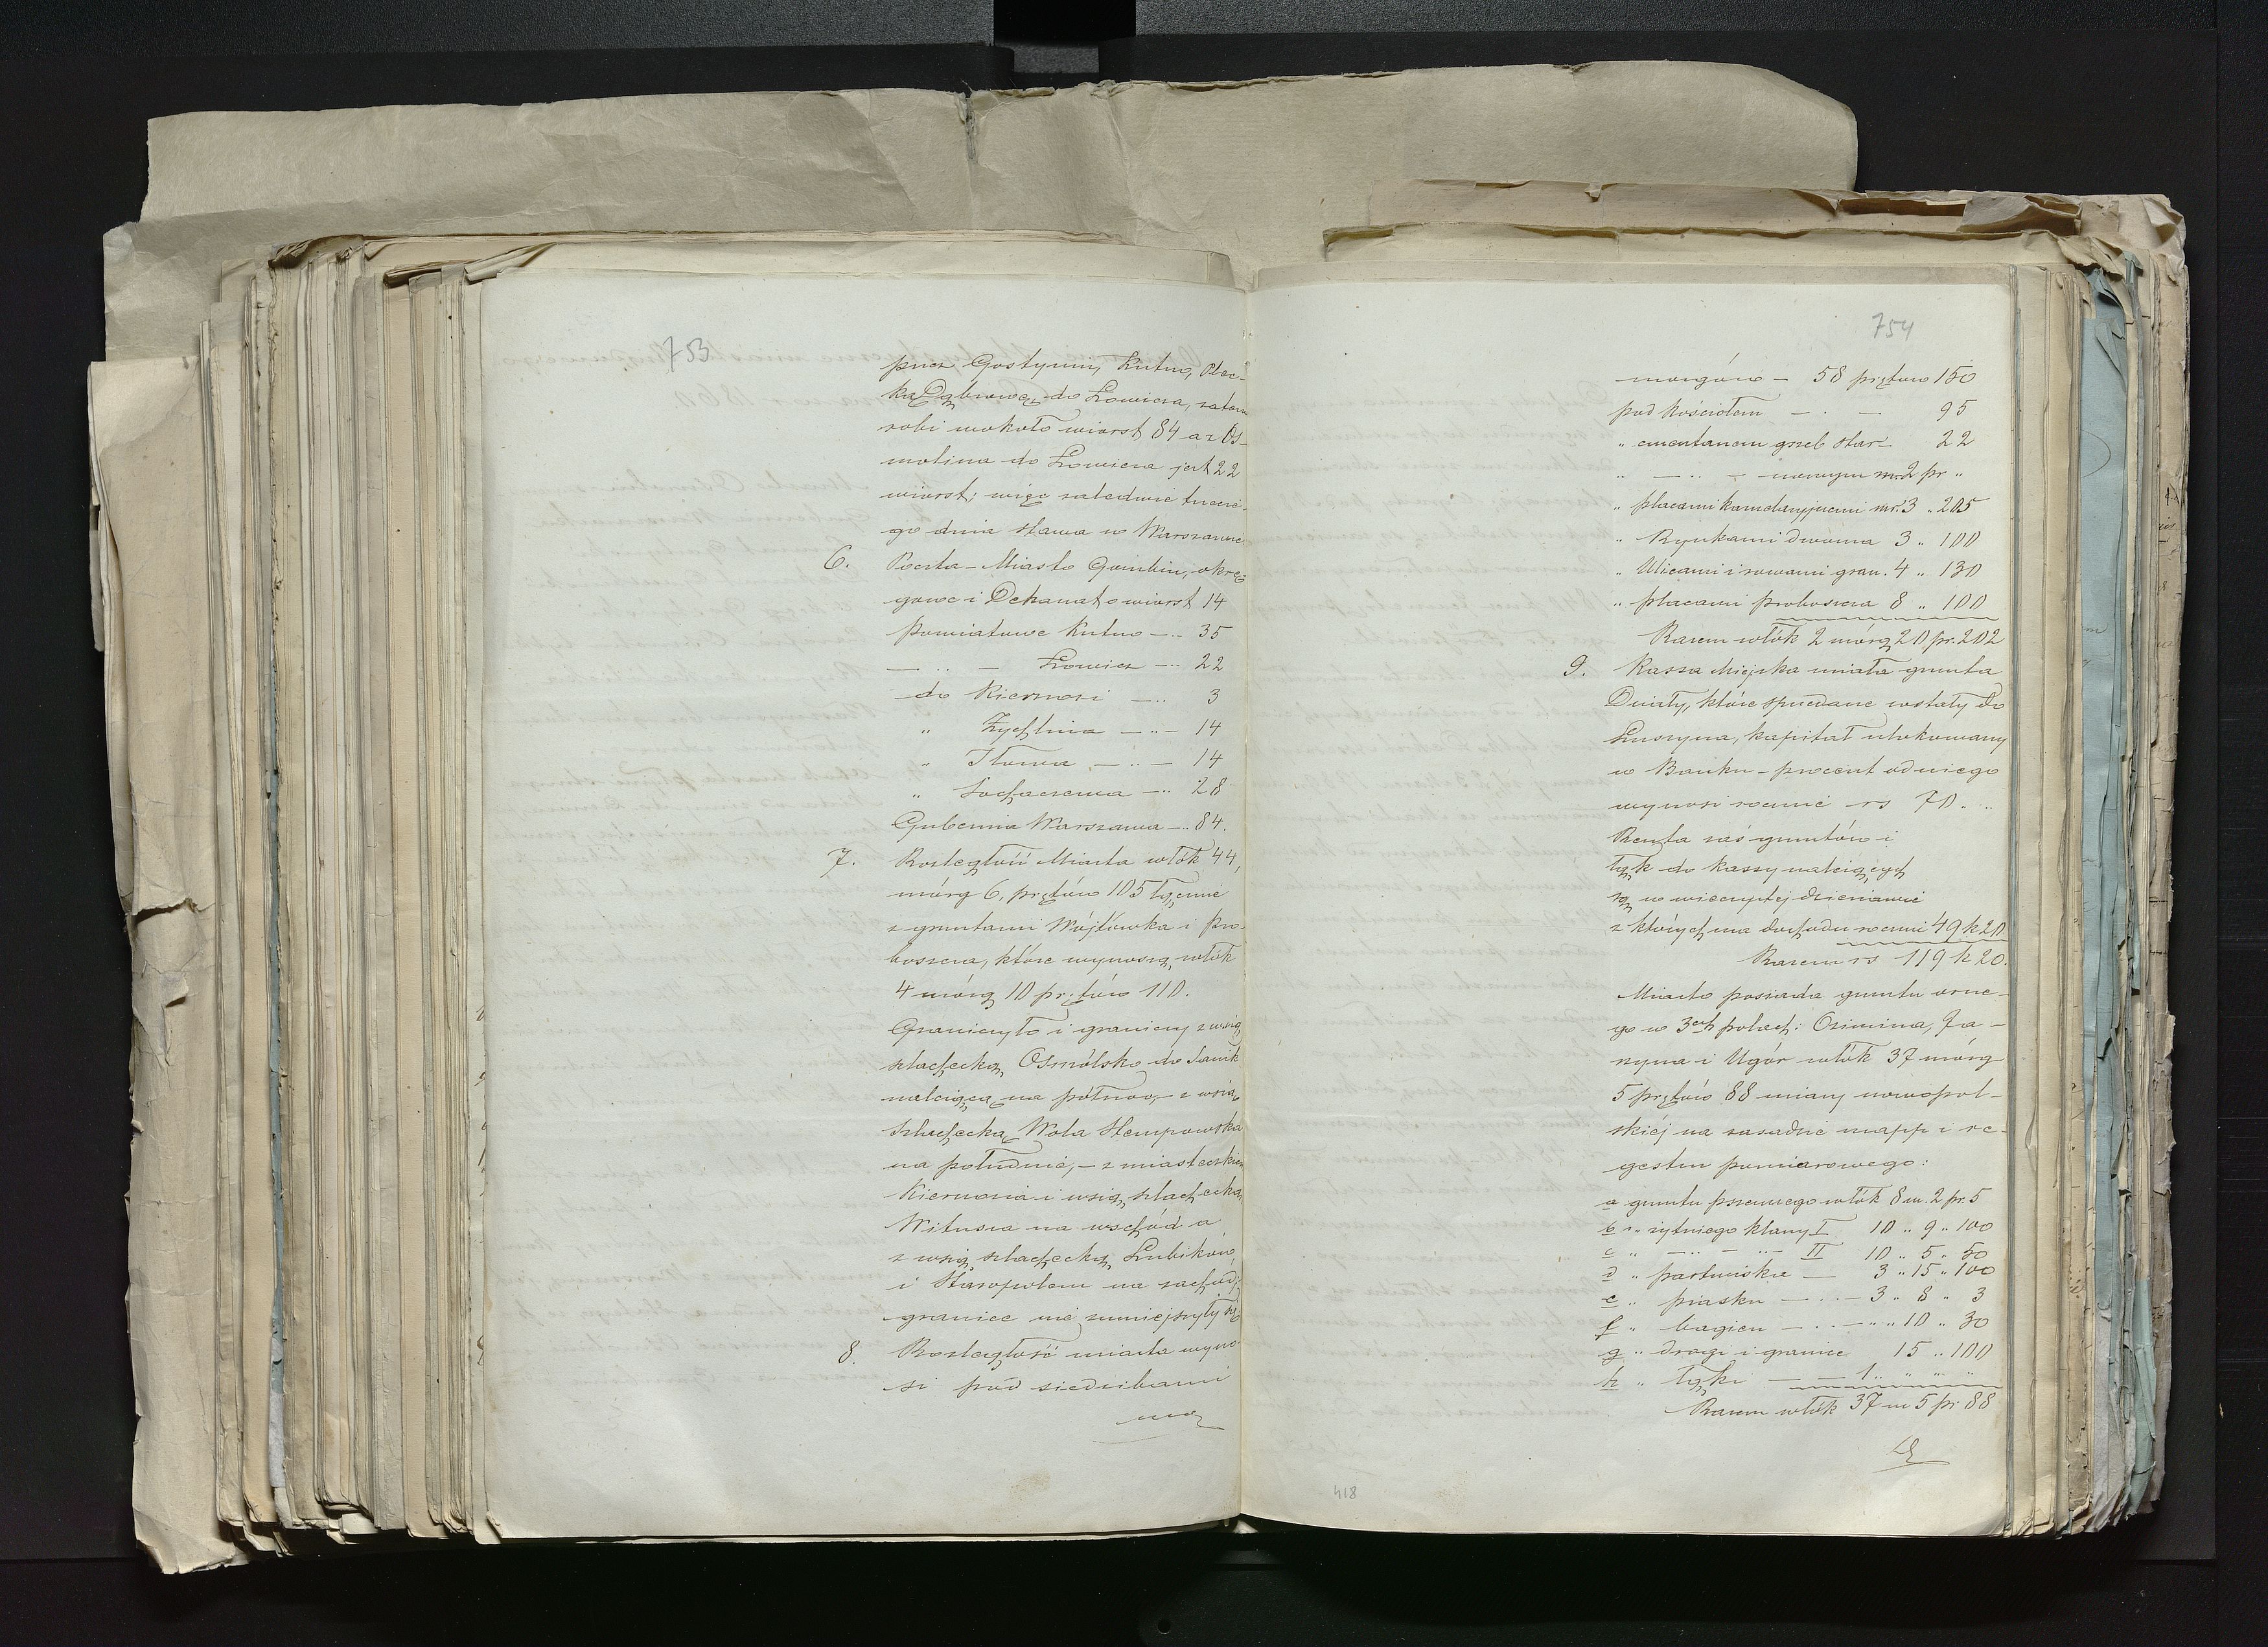 753
przez Gostynin, Kutno, Plec-
ką Dąbrowę, do Łowicza, zatem
robi wokoło wiorst 84 a z Os-
molina do Łowicza jest 22
wiorst; więc zaledwie trzecie-
go dnia stawa w Warszawie
6. Poczta – Miasto Gombin, okrę-
gowe i Dekanat o wiorst 14
Powiatowe Kutno — „ 35
— „ — Łowicz — „ 22
do Kiernozi — „ 3
„ Żychlina — „ — 14
„ Iłowa — „ — 14
„ Sochaczewa — „ 28
Gubernia Warszawa — „ 84.
7. Rozległość Miasta włók 44,
mórg 6, prętów 105 łącznie
z gruntami Wójtówka i Pro-
boszcza, które wynoszą włók
4 mórg 10 prętów 110.
Graniczyło i graniczy z wsią
szlachecką Osmólsko do Sanik
należącą na północ, – z wsią
szlachecką Wola Stempowska
na południe, – z miasteczkiem
Kiernozia i wsią szlachecką
Witusza na wschód a
z wsią szlachecką Lubików
i Staropolem na zachód;
granice nie zmniejszyły się
8. Rozległość miasta wyno-
si pod siedzibami
mor
754
morgów – 58 prętów 150
pod kościołem — . — 95
„ cmentarzem grzeb star– 22
„ — „ — nowym mr. 2 pr „
„ placami karudaryjnemi mr. 3 „ 205
„ Rynkami dwoma 3 „ 100
„ Ulicami i rowami gran. 4 „ 130
„ placami proboszcza 8 „ 100
Razem włók 2 mórg 20 pr. 202
9. Kassa Miejska miała grunta
Działy, które sprzedane zostały do
Luszyna, kapitał ulokowany
w Banku – procent od niego
wynosi rocznie rs 70. „
Reszta zaś gruntów i
łąk do kassy należących
są w wieczystej dzierżawie
z których ma dochodu rocznie 49 k 20
Razem rs 119 k 20.
Miasto posiada gruntu orne-
go w 3ch polach: Ozimina, Ja-
rzyna i Ugór włók 37 mórg
5 prętów 88 miary nowopol-
skiej na zasadzie mapp i re-
gestru pomiarowego:
a gruntu pszennego włók 8 m. 2 pr. 5
b „ żytniego klassy I 10 „ 9 „ 100
c „ — „ — „ II 10 „ 5 „ 50
d „ pastwiska — 3 „ 15 „ 100
e „ piasku — . — 3 „ 8 „ 3
f „ bagien — . — „ 10 „ 30
g „ drogi i granice 15 „ 100
h „ łąki — — 1 „ „ „
Razem włók 37 m 5 pr 88
418